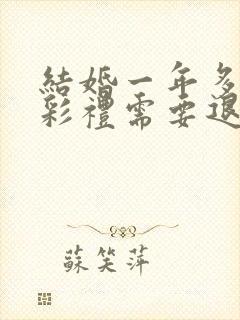 結婚一年多
彩禮需要退
蘇笑萍